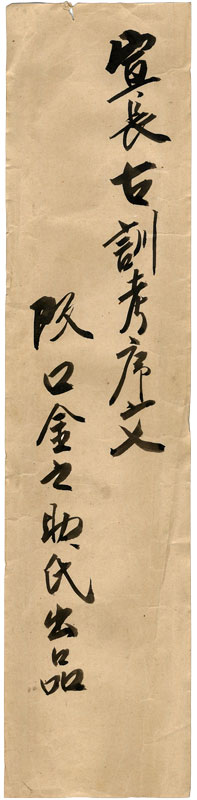 宣長古訓考序文
阪口金之助氏出品